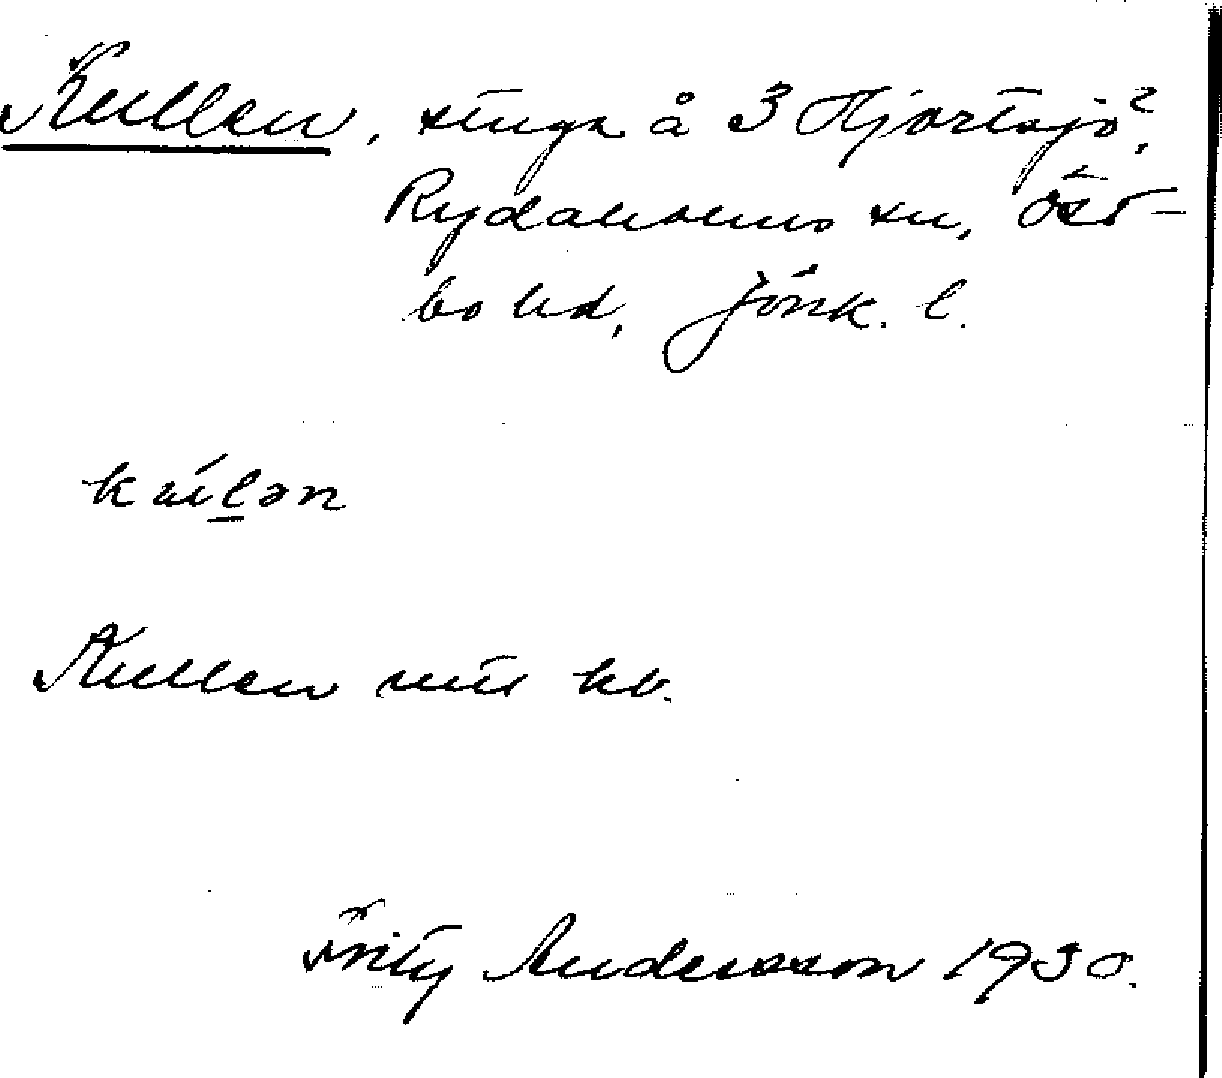 Kullen, stuga å 3 Hjortsjö?,
Rydaholms sn, Öst-
bo hd, Jönk. l.
kúlən
Kullen utt kb.
Frity Andersson 1930.